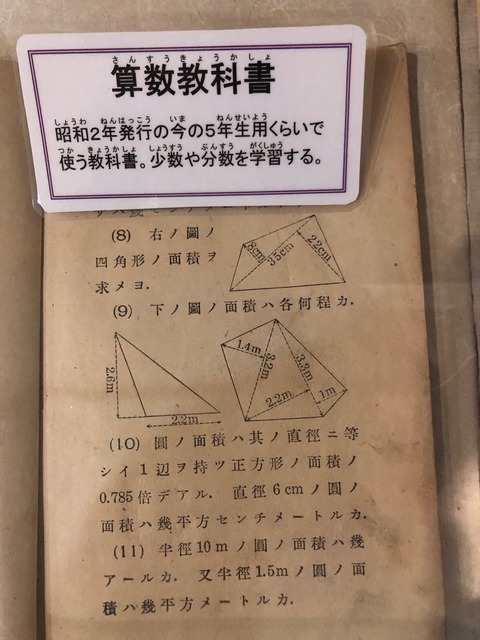 さんすうきょうかしょ
算数教科書
しょうわ ねんはっこう いま ねんせいよう
昭和2年発行の今の5年生用くらいで
つか きょうかしょ しょうすう ぶんすう がくしゅう
使う教科書。少数や分数を学習する。
(8) 右ノ圖ノ
四角形ノ面積ヲ
求メヨ.
8cm
35cm
22cm
(9) 下ノ圖ノ面積ハ各何程カ.
2.6m
2.2m
1.4m
3.2m
3.3m
2.2m
1m
(10) 圓ノ面積ハ其ノ直徑ニ等
シイ1邊ヲ持ツ正方形ノ面積ノ
0.785倍デアル. 直徑6cmノ圓ノ
面積ハ幾平方センチメートルカ.
(11) 半徑10mノ圓ノ面積ハ幾
アールカ. 又半徑1.5mノ圓ノ面
積ハ幾平方メートルカ.